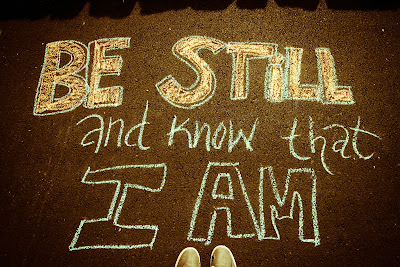 BE STiLL
and know that
I AM